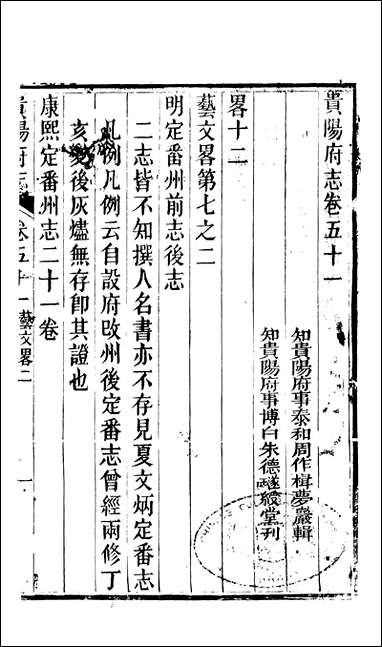 貴陽府志卷五十一
知貴陽府事泰和周作楫夢巖輯
知貴陽府事博白朱德璲綬堂刊
畧十二
藝文畧第七之二
明定番州前志後志
二志皆不知撰人名書亦不存見夏文炳定番志
凡例凡例云自設府改州後定番志曾經兩修丁
亥變後灰燼無存即其證也
康熙定番州志二十一卷
貴陽府志 卷五十一藝文畧二 一